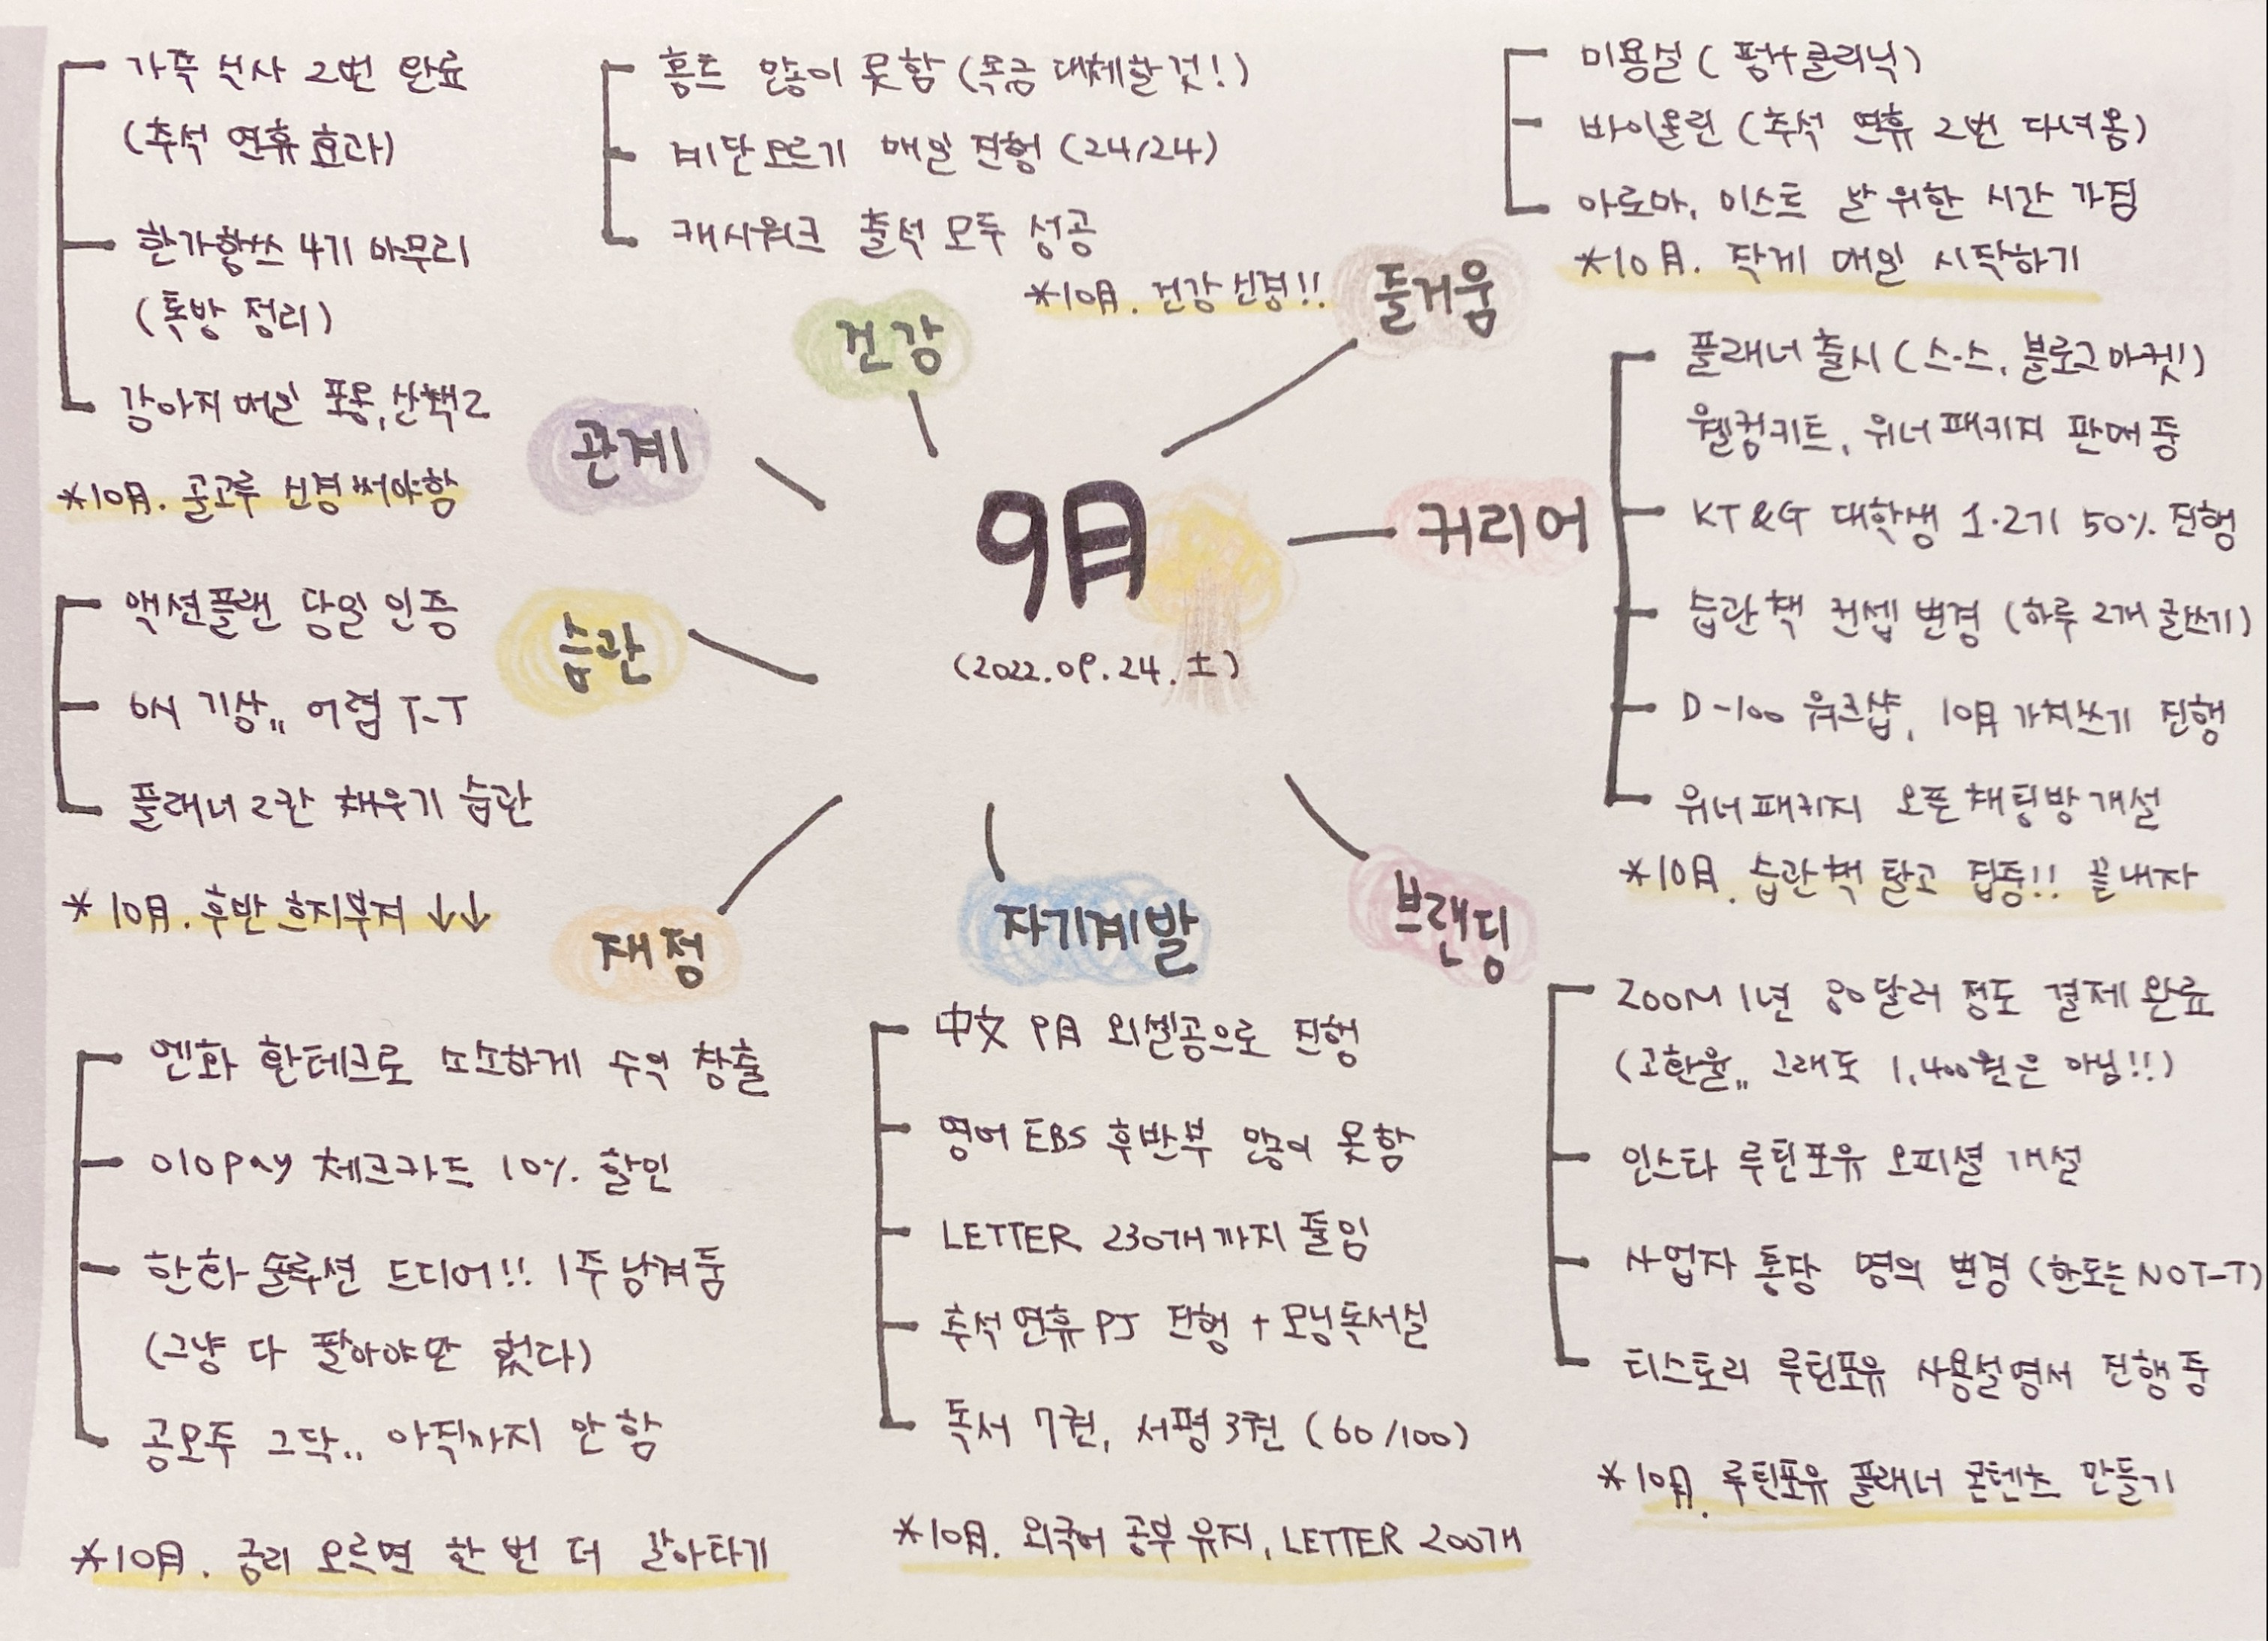 9月
(2022.09.24.土)
건강
홈트 많이 못함 (목금 대체할 것!)
계단오르기 매일 진행 (24/24)
캐시워크 출석 모두 성공
*10月. 건강 신경!!
즐거움
미용실 (펌+클리닉)
바이올린 (추석 연휴 2번 다녀옴)
아로마, 미스트 발 위한 시간 가짐
*10月. 작게 매일 시작하기
커리어
플래너 출시 (스.스, 블로그마켓!)
웰컴키트, 위너패키지 판매중
KT&G 대학생 1·2기 50% 진행
습관책 컨셉 변경 (하루 2개 글쓰기)
D-100 워크샵, 10月 가치쓰기 진행
위너패키지 오픈채팅방 개설
*10月. 습관책 탈고 집중!! 끝내자
브랜딩
ZOOM 1년 80달러 정도 결제 완료
(고환율,, 그래도 1,400원은 아님!!)
인스타 루틴포유 오피셜 개설
사업자 통장 명의 변경 (한도는 NO T-T)
티스토리 루틴포유 사용설명서 진행중
*10月. 루틴포유 플래너 콘텐츠 만들기
자기계발
中文 9月 외셀공으로 진행
영어 EBS 후반부 많이 못함
LETTER 230개까지 줄임
추석연휴 PJ 진행 + 모닝독서실
독서 7권, 서평 3권 (60/100)
*10月. 외국어 공부 유지, LETTER 200개
재정
엔화 환테크로 소소하게 수익 창출
010pay 체크카드 10% 할인
한화솔루션 드디어!! 1주 남겨둠
(그냥 다 팔아야만 했다)
공모주 그닥.. 아직까지 안 함
*10月. 금리 오르면 한 번 더 갈아타기
습관
액션플랜 당일 인증
6시 기상,, 어렵 T-T
플래너 2칸 채우기 습관
*10月. 후반 흐지부지 ↓↓
관계
가족 식사 2번 완료
(추석 연휴 효과)
한가향쓰 4기 마무리
(톡방 정리)
강아지 매일 포옹, 산책2
*10月. 골고루 신경 써야함